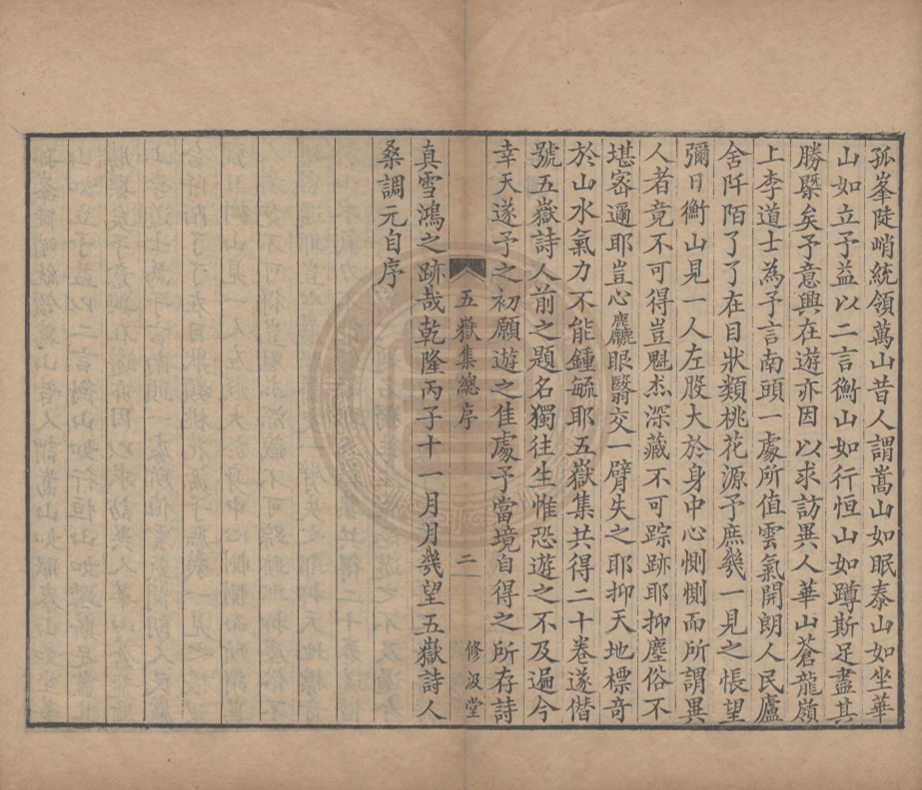 孤峯陡峭統領萬山昔人謂嵩山如眠泰山如坐華
山如立予益以二言衡山如行恒山如蹲斯足盡其
勝槩矣予意興在遊亦因以求訪異人華山蒼龍嶺
上李道士為予言南頭一處所值雲氣開朗人民廬
舍阡陌了了在目狀類桃花源予庶幾一見之悵望
彌日衡山見一人左股大於身中心惻惻而所謂異
人者竟不可得豈魁杰深藏不可踪跡耶抑塵俗不
堪宻邇耶豈心麤眼翳交一臂失之耶抑天地標奇
於山水氣力不能鍾毓耶五嶽集共得二十卷遂僭
號五嶽詩人前之題名獨往生惟恐遊之不及遍今
幸天遂予之初願遊之佳處予當境自得之所存詩
五嶽集總序
二
修汲堂
真雪鴻之跡哉乾隆丙子十一月月幾望五嶽詩人
桑調元自序